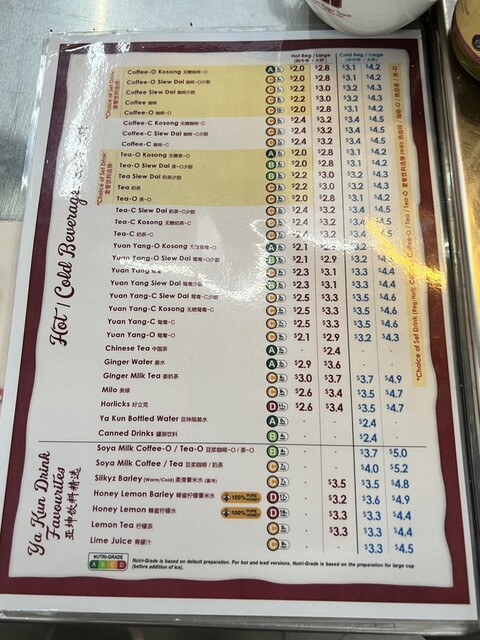 Hot Reg / Large Cold Reg / Large
Coffee-O Kosong 无糖咖啡-O A $2.0 $2.8 $3.1 $4.2
Coffee-O Siew Dai 咖啡-O少甜 $2.0 $2.8 $3.1 $4.2
Coffee Siew Dai 咖啡少甜 $2.2 $3.0 $3.2 $4.3
Coffee 咖啡 $2.2 $3.0 $3.2 $4.3
Coffee-O 咖啡-O $2.0 $2.8 $3.1 $4.2
Coffee-C Kosong 无糖咖啡-C $2.4 $3.2 $3.4 $4.5
Coffee-C Siew Dai 咖啡-C少甜 $2.4 $3.2 $3.4 $4.5
Coffee-C 咖啡-C $2.4 $3.2 $3.4 $4.5
Tea-O Kosong 无糖茶-O A $2.0 $2.8 $3.1 $4.2
Tea-O Siew Dai 茶-O少甜 B $2.0 $2.8 $3.1 $4.2
Tea Siew Dai 奶茶少甜 B $2.2 $3.0 $3.2 $4.3
Tea 奶茶 $2.2 $3.0 $3.2 $4.3
Tea-O 茶-O $2.0 $2.8 $3.1 $4.2
Tea-C Siew Dai 奶茶-C少甜 $2.4 $3.2 $3.4 $4.5
Tea-C Kosong 无糖奶茶-C $2.4 $3.2 $3.4 $4.5
Tea-C 奶茶-C $2.4 $3.2 $3.4 $4.5
Yuan Yang-O Kosong 无糖鸳鸯-O A $2.1 $2.9
Yuan Yang-O Siew Dai 鸳鸯-O少甜 B $2.1 $2.9
Yuan Yang 鸳鸯 $2.3 $3.1 $3.3 $4.4
Yuan Yang Siew Dai 鸳鸯少甜 B $2.3 $3.1 $3.3 $4.4
Yuan Yang-C Siew Dai 鸳鸯-C少甜 $2.5 $3.3 $3.5 $4.6
Yuan Yang-C Kosong 无糖鸳鸯-C $2.5 $3.3 $3.5 $4.6
Yuan Yang-C 鸳鸯-C $2.5 $3.3 $3.5 $4.6
Yuan Yang-O 鸳鸯-O $2.1 $2.9 $3.2 $4.3
Chinese Tea 中国茶 A - $2.4 - -
Ginger Water 姜水 A $2.9 $3.6 - -
Ginger Milk Tea 姜奶茶 $3.0 $3.7 $3.7 $4.9
Milo 美禄 $2.6 $3.4 $3.5 $4.7
Horlicks 好立克 D $2.6 $3.4 $3.5 $4.7
Ya Kun Bottled Water 亚坤瓶装水 A - - $2.4 -
Canned Drinks 罐装饮料 B - - $2.4 -
Soya Milk Coffee-O / Tea-O 豆浆咖啡-O / 茶-O B - - $3.7 $5.0
Soya Milk Coffee / Tea 豆浆咖啡 / 奶茶 - - $4.0 $5.2
Silkyz Barley (Warm/Cold) 柔滑薏米水 - $3.5 $3.5 $4.8
Honey Lemon Barley 蜂蜜柠檬薏米水 100% PURE HONEY D - $3.2 $3.6 $4.9
Honey Lemon 蜂蜜柠檬水 100% PURE HONEY D - $3.3 $3.3 $4.4
Lemon Tea 柠檬茶 - $3.3 $3.3 $4.4
Lime Juice 青柠汁 - - $3.3 $4.5
*Choice of Set Drink
套餐饮料选择:
*Choice of Set Drink
套餐饮料选择:
Hot / Cold Beverage
Ya Kun Drink
Favourites
亚坤饮料精选
NUTRI-GRADE
A B C D
Nutri-Grade is based on default preparation. For hot and iced versions, Nutri-Grade is based on the preparation for large cup
(before addition of ice).